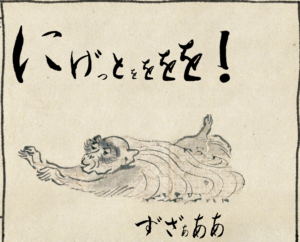 にげっとををををを!
ずざぁああ